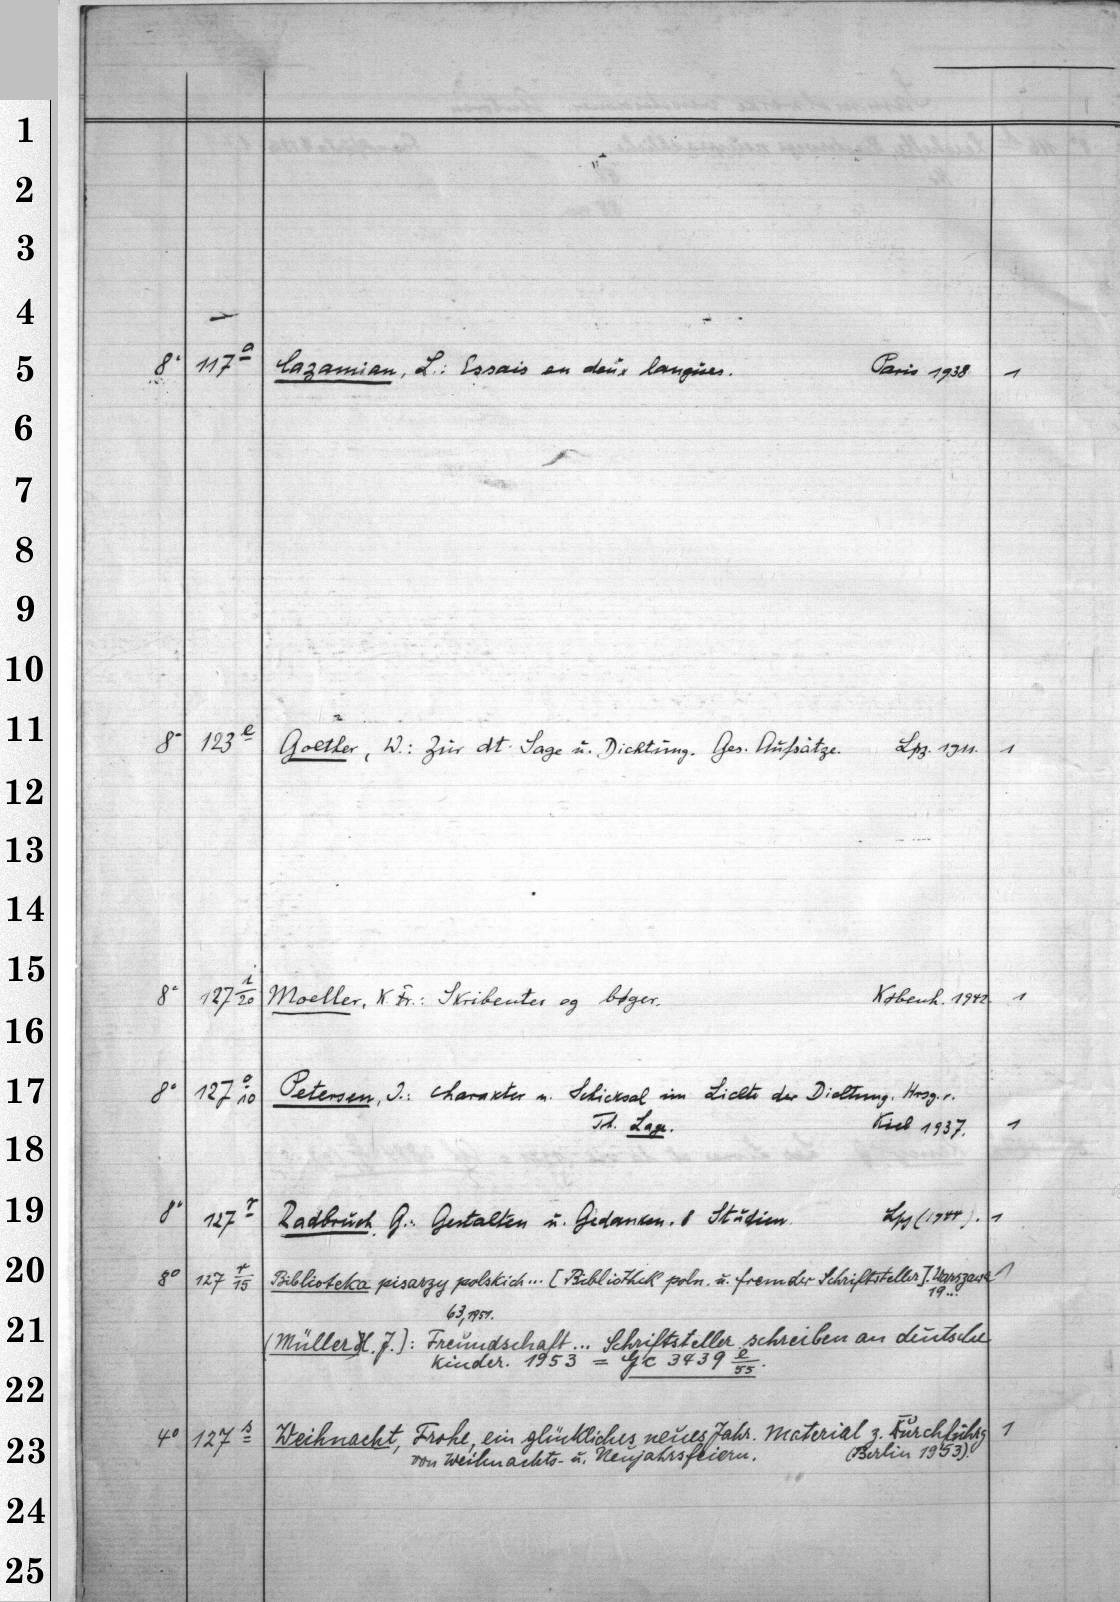 1
2
3
4
8° 117 a Cazamian, L.: Essais en deux langues. Paris 1938. 1
5
6
7
8
9
10
11
8° 123 e Golther, W.: Zur dt. Sage u. Dichtung. Ges. Aufsätze. Lpz. 1911. 1
12
13
14
15
8° 127 i/20 Moeller, K. Fr.: Skribenter og bøger. Københ. 1942. 1
16
17
8° 127 o/10 Petersen, J.: Charakter u. Schicksal im Lichte der Dichtung. Hrsg. v.
Th. Lage. Kiel 1937. 1
18
19
8° 127 r Radbruch, G.: Gestalten u. Gedanken. 8 Studien. Lpz (1944). 1
20
8° 127 r/15 Biblioteka pisarzy polskich... [Bibliothek poln. u. fremder Schriftsteller]. Warszawa 1
19...
63, 1951.
21
(Müller, H. J.): Freundschaft... Schriftsteller schreiben an deutsche
Kinder. 1953 = Gc 3439 e/55.
22
4° 127 s Weihnacht, Frohe, ein glückliches neues Jahr. Material z. Durchführg 1
23
von Weihnachts- u. Neujahrsfeiern. (Berlin 1953).
24
25